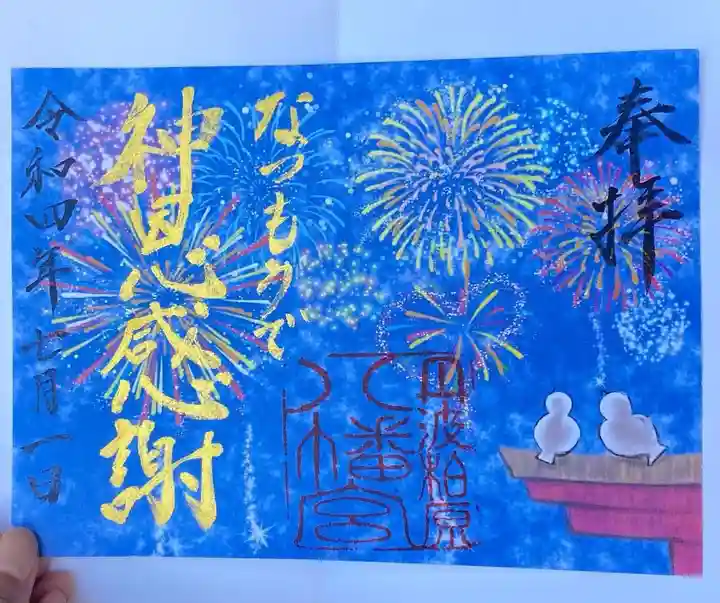 奉拝
丹波柏原
八幡宮
なつもうで
神恩感謝
令和四年七月一日